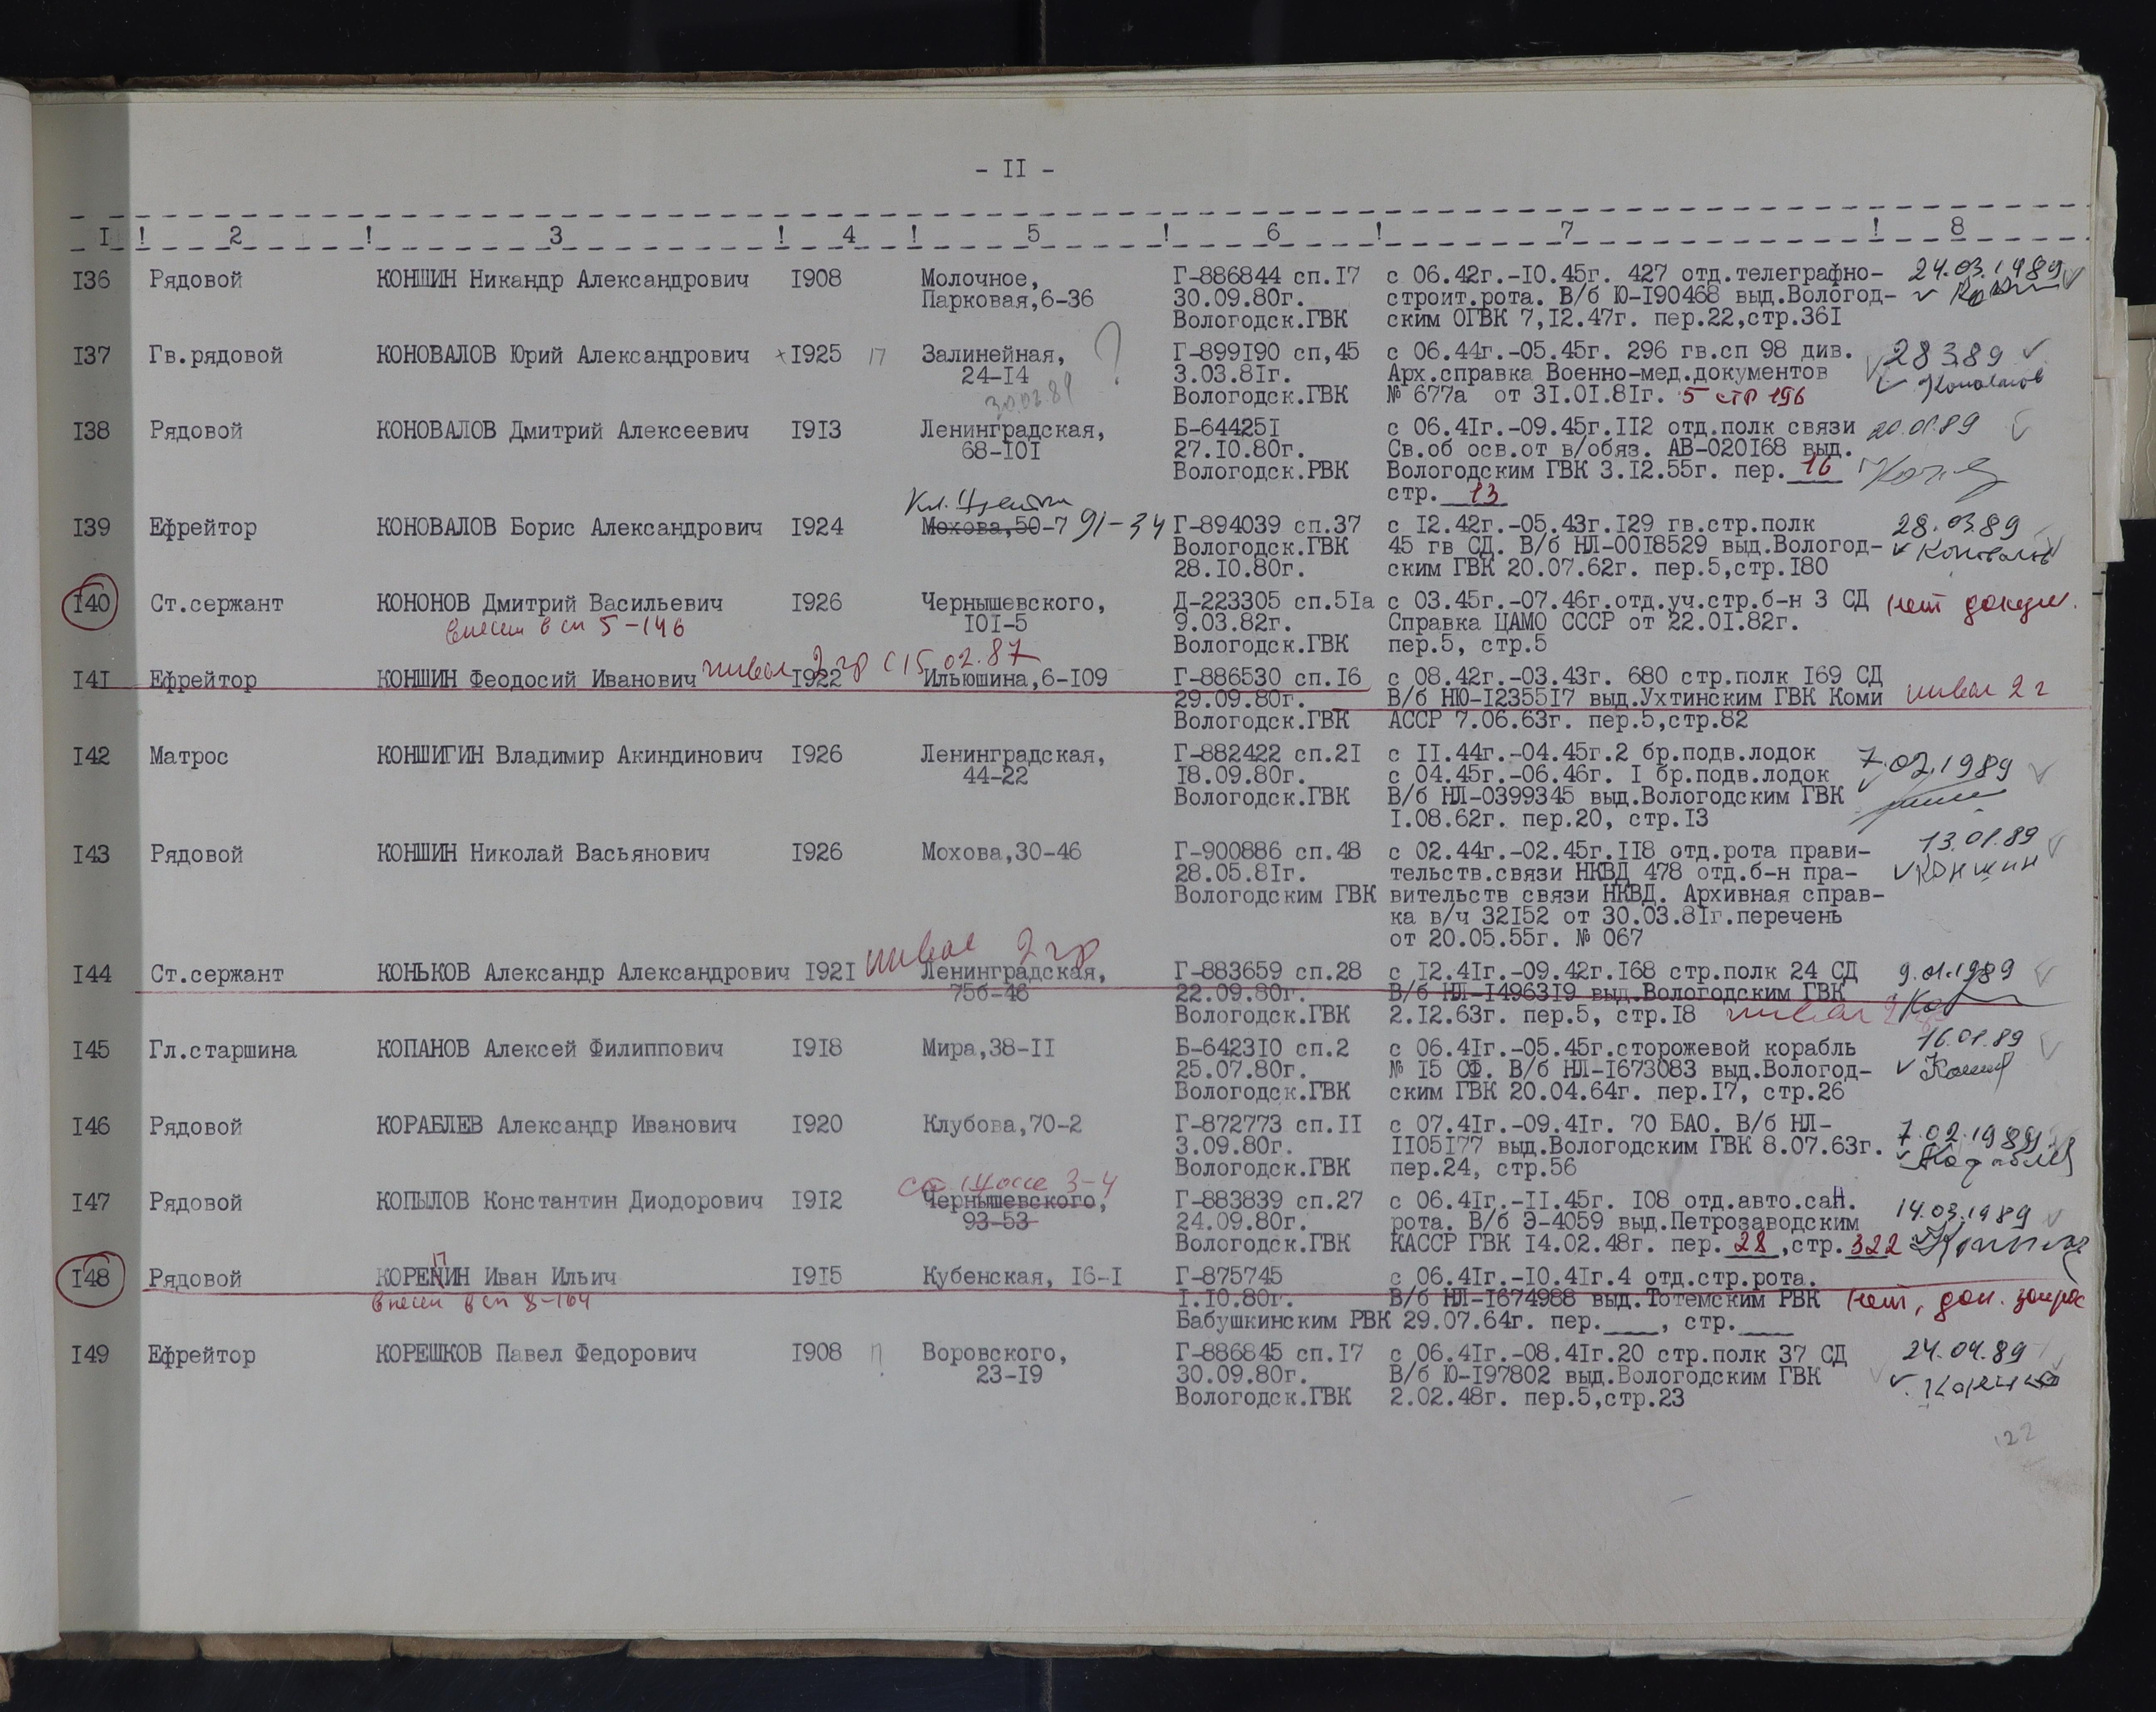 - II -
I ! 2 ! 3 ! 4 ! 5 ! 6 ! 7 ! 8
I36 Рядовой КОНШИН Никандр Александрович I908 Молочное, Г-886844 сп.I7 с 06.42г.-I0.45г. 427 отд.телеграфно- 24.03.1989
Парковая,6-36 30.09.80г. строит.рота. В/б Ю-I90468 выд.Вологод-
Вологодск.ГВК ским ОГВК 7,I2.47г. пер.22,стр.36I
I37 Гв.рядовой КОНОВАЛОВ Юрий Александрович I925 Залинейная, ? Г-899I90 сп,45 с 06.44г.-05.45г. 296 гв.сп 98 див. 28.3.89
24-I4 3.03.8Iг. Арх.справка Военно-мед.документов Коновалов
30.03.89 Вологодск.ГВК № 677а от 3I.0I.8Iг. 5 стр 196
I38 Рядовой КОНОВАЛОВ Дмитрий Алексеевич I9I3 Ленинградская, Б-64425I с 06.4Iг.-09.45г.II2 отд.полк связи 20.01.89
68-I0I 27.I0.80г. Св.об осв.от в/обяз. АВ-020I68 выд.
Вологодск.РВК Вологодским ГВК 3.I2.55г. пер. 16
стр. 13
Кл. Цеткин
I39 Ефрейтор КОНОВАЛОВ Борис Александрович I924 Мохова,50-7 91-34 Г-894039 сп.37 с I2.42г.-05.43г.I29 гв.стр.полк 28.03.89
Вологодск.ГВК 45 гв СД. В/б НЛ-00I8529 выд.Вологод- Коновалов
28.I0.80г. ским ГВК 20.07.62г. пер.5,стр.I80
I40 Ст.сержант КОНОНОВ Дмитрий Васильевич I926 Чернышевского, Д-223305 сп.5Iа с 03.45г.-07.46г.отд.уч.стр.б-н 3 СД нет докум.
внесен в сп 5-146 I0I-5 9.03.82г. Справка ЦАМО СССР от 22.0I.82г.
Вологодск.ГВК пер.5, стр.5
инвал 2 гр с 15.02.87
I4I Ефрейтор КОНШИН Феодосий Иванович I922 Ильюшина,6-I09 Г-886530 сп.I6 с 08.42г.-03.43г. 680 стр.полк I69 СД
29.09.80г. В/б НЮ-I2355I7 выд.Ухтинским ГВК Коми инвал 2 г
Вологодск.ГВК АССР 7.06.63г. пер.5,стр.82
I42 Матрос КОНШИГИН Владимир Акиндинович I926 Ленинградская, Г-882422 сп.2I с II.44г.-04.45г.2 бр.подв.лодок 7.02.1989
44-22 I8.09.80г. с 04.45г.-06.46г. I бр.подв.лодок
Вологодск.ГВК В/б НЛ-0399345 выд.Вологодским ГВК
I.08.62г. пер.20, стр.I3
I43 Рядовой КОНШИН Николай Васьянович I926 Мохова,30-46 Г-900886 сп.48 с 02.44г.-02.45г.II8 отд.рота прави- 13.01.89
28.05.8Iг. тельств.связи НКВД 478 отд.б-н пра- Коншин
Вологодским ГВК вительств связи НКВД. Архивная справ-
ка в/ч 32I52 от 30.03.8Iг.перечень
от 20.05.55г. № 067
инвал 2 гр
I44 Ст.сержант КОНЬКОВ Александр Александрович I92I Ленинградская, Г-883659 сп.28 с I2.4Iг.-09.42г.I68 стр.полк 24 СД 9.01.1989
75б-46 22.09.80г. В/б НЛ-I4963I9 выд.Вологодским ГВК
Вологодск.ГВК 2.I2.63г. пер.5, стр.I8 инвал 2
I45 Гл.старшина КОПАНОВ Алексей Филиппович I9I8 Мира,38-II Б-6423I0 сп.2 с 06.4Iг.-05.45г.сторожевой корабль 16.01.89
25.07.80г. № I5 СФ. В/б НЛ-I673083 выд.Вологод-
Вологодск.ГВК ским ГВК 20.04.64г. пер.I7, стр.26
I46 Рядовой КОРАБЛЕВ Александр Иванович I920 Клубова,70-2 Г-872773 сп.II с 07.4Iг.-09.4Iг. 70 БАО. В/б НЛ- 7.02.1989
3.09.80г. II05I77 выд.Вологодским ГВК 8.07.63г.
Вологодск.ГВК пер.24, стр.56
3-4
I47 Рядовой КОПЫЛОВ Константин Диодорович I9I2 Чернышевского, Г-883839 сп.27 с 06.4Iг.-II.45г. I08 отд.авто.сан. 14.03.1989
93-53 24.09.80г. рота. В/б Э-4059 выд.Петрозаводским
Вологодск.ГВК КАССР ГВК I4.02.48г. пер. 28 ,стр. 322
I48 Рядовой КОРЕПИН Иван Ильич I9I5 Кубенская, I6-I Г-875745 с 06.4Iг.-I0.4Iг.4 отд.стр.рота.
внесен в сп 8-164 I.I0.80г. В/б НЛ-I674988 выд.Тотемским РВК нет, док. запрос
Бабушкинским РВК 29.07.64г. пер.____, стр.____
I49 Ефрейтор КОРЕШКОВ Павел Федорович I908 Воровского, Г-886845 сп.I7 с 06.4Iг.-08.4Iг.20 стр.полк 37 СД 24.04.89
23-I9 30.09.80г. В/б Ю-I97802 выд.Вологодским ГВК
Вологодск.ГВК 2.02.48г. пер.5,стр.23